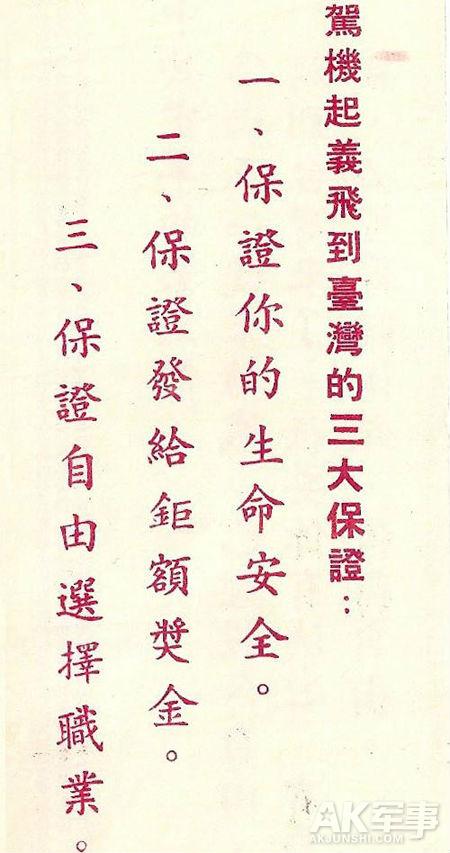 駕機起義飛到臺灣的三大保證：
一、保證你的生命安全。
二、保證發給鉅額獎金。
三、保證自由選擇職業。
AK军事
AKJUNSHI.COM